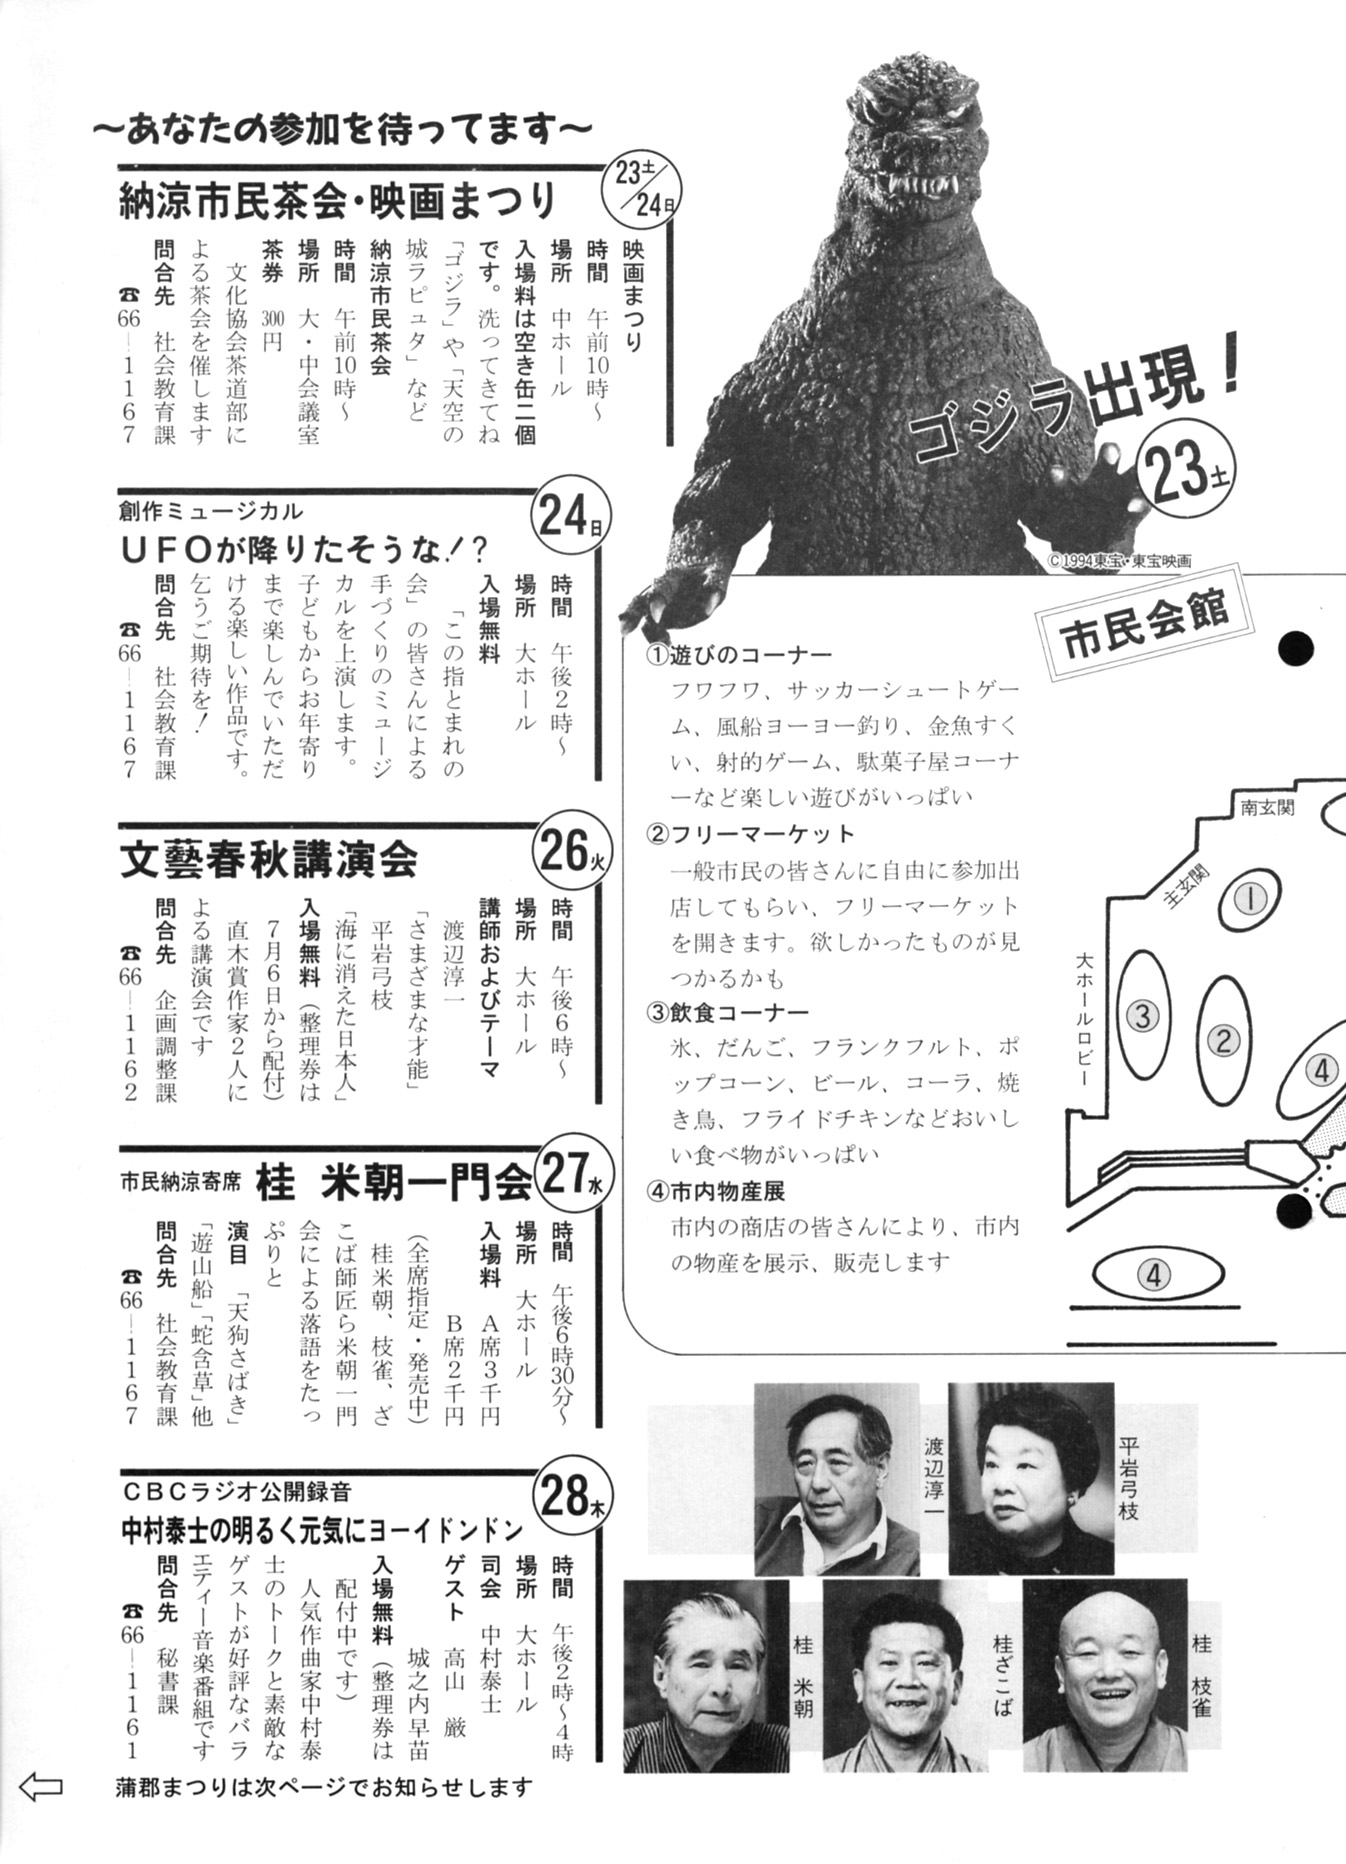 ～あなたの参加を待ってます～
23土／24日
納涼市民茶会・映画まつり
映画まつり
時間　午前10時～
場所　中ホール
入場料は空き缶二個
です。洗ってきてね
「ゴジラ」や「天空の
城ラピュタ」など
納涼市民茶会
時間　午前10時～
場所　大・中会議室
茶券　300円
文化協会茶道部に
よる茶会を催します
問合先　社会教育課
☎66－1167
24日
創作ミュージカル
UFOが降りたそうな！？
時間　午後2時～
場所　大ホール
入場無料
「この指とまれの
会」の皆さんによる
手づくりのミュージ
カルを上演します。
子どもからお年寄り
まで楽しんでいただ
ける楽しい作品です。
乞うご期待を！
問合先　社会教育課
☎66－1167
26火
文藝春秋講演会
時間　午後6時～
場所　大ホール
講師およびテーマ
渡辺淳一
「さまざまな才能」
平岩弓枝
「海に消えた日本人」
入場無料（整理券は
7月6日から配付）
直木賞作家2人に
よる講演会です
問合先　企画調整課
☎66－1162
27水
市民納涼寄席　桂　米朝一門会
時間　午後6時30分～
場所　大ホール
入場料　A席3千円
B席2千円
（全席指定・発売中）
桂米朝、枝雀、ざ
こば師匠ら米朝一門
会による落語をたっ
ぷりと
演目　「天狗さばき」
「遊山船」「蛇含草」他
問合先　社会教育課
☎66－1167
28木
CBCラジオ公開録音
中村泰士の明るく元気にヨーイドンドン
時間　午後2時～4時
場所　大ホール
司会　中村泰士
ゲスト　高山　厳
城之内早苗
入場無料（整理券は
配付中です）
人気作曲家中村泰
士のトークと素敵な
ゲストが好評なバラ
エティー音楽番組です
問合先　秘書課
☎66－1161
蒲郡まつりは次ページでお知らせします
ゴジラ出現！
23土
©1994東宝・東宝映画
市民会館
①遊びのコーナー
フワフワ、サッカーシュートゲー
ム、風船ヨーヨー釣り、金魚すく
い、射的ゲーム、駄菓子屋コーナ
ーなど楽しい遊びがいっぱい
②フリーマーケット
一般市民の皆さんに自由に参加出
店してもらい、フリーマーケット
を開きます。欲しかったものが見
つかるかも
③飲食コーナー
氷、だんご、フランクフルト、ポ
ップコーン、ビール、コーラ、焼
き鳥、フライドチキンなどおいし
い食べ物がいっぱい
④市内物産展
市内の商店の皆さんにより、市内
の物産を展示、販売します
南玄関
主玄関
大ホールロビー
①
③
②
④
④
渡辺淳一
平岩弓枝
桂　米朝
桂ざこば
桂　枝雀